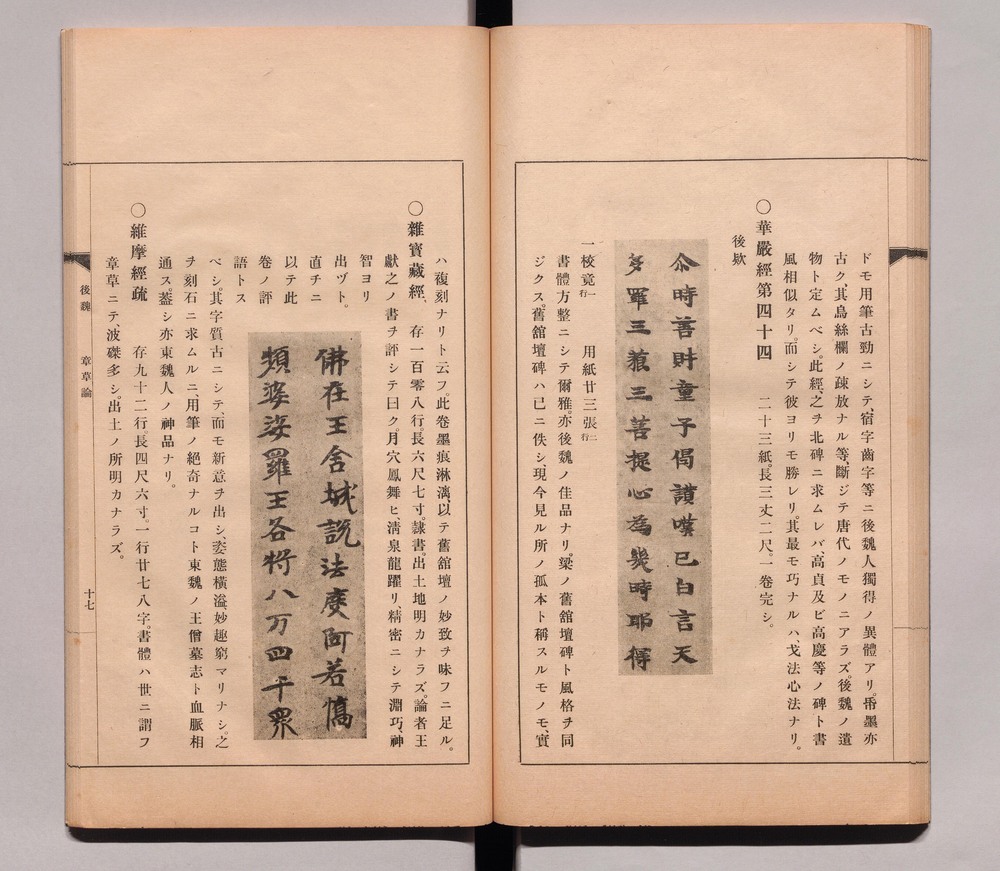 ドモ用筆古勁ニシテ、宿字齒字等ニ後魏人獨得ノ異體アリ。帋墨亦
古ク、其烏絲欄ノ疎放ナル等、斷ジテ唐代ノモノニアラズ。後魏ノ遺
物ト定ムベシ。此經、之ヲ北碑ニ求ムレバ高貞及ビ高慶等ノ碑ト書
風相似タリ。而シテ彼ヨリモ勝レリ。其最モ巧ナルハ、戈法心法ナリ。
〇華嚴經第四十四　二十三紙。長三丈二尺。一卷完シ。
後欵
尒時善財童子偈讃嘆已白言天
多羅三藐三菩提心為幾時耶得
一校竟一行　用紙廿三張二行
書體方整ニシテ爾雅。亦後魏ノ佳品ナリ。梁ノ舊舘壇碑ト風格ヲ同
ジクス。舊舘壇碑ハ已ニ佚シ、現今見ル所ノ孤本ト稱スルモノモ、實
ハ複刻ナリト云フ。此卷墨痕淋漓、以テ舊舘壇ノ妙致ヲ味フニ足ル。
〇雜寶藏經、　存一百零八行。長六尺七寸。隷書。出土地明カナラズ。論者王
獻之ノ書ヲ評シテ曰ク。月穴鳳舞ヒ淸泉龍躍リ、精密ニシテ淵巧、神
智ヨリ
出ヅト。
直チニ
以テ此
卷ノ評
語トス
佛在王舍城說法度阿若憍
頻婆娑羅王各將八万四千眾
ベシ。其字質古ニシテ、而モ新意ヲ出シ、姿態橫溢、妙趣窮マリナシ。之
ヲ刻石ニ求ムルニ、用筆ノ絕奇ナルコト東魏ノ王僧墓志ト血脈相
通ス。蓋シ亦東魏人ノ神品ナリ。
〇維摩經疏　存九十二行。長四尺六寸。一行廿七八字。書體ハ世ニ謂フ
章草ニテ、波磔多シ。出土ノ所明カナラズ。
後魏　章草論
十七